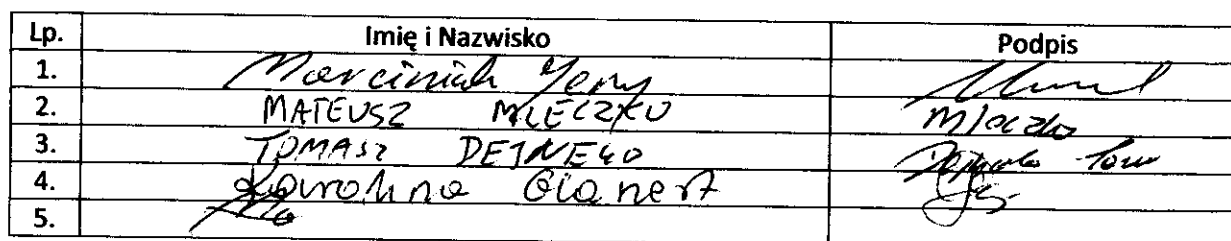 Lp. Imię i Nazwisko Podpis
1. Marciniak Jerzy
2. MATEUSZ MLECZKO Mleczko
3. TOMASZ
4. Karolina Glanert
5.